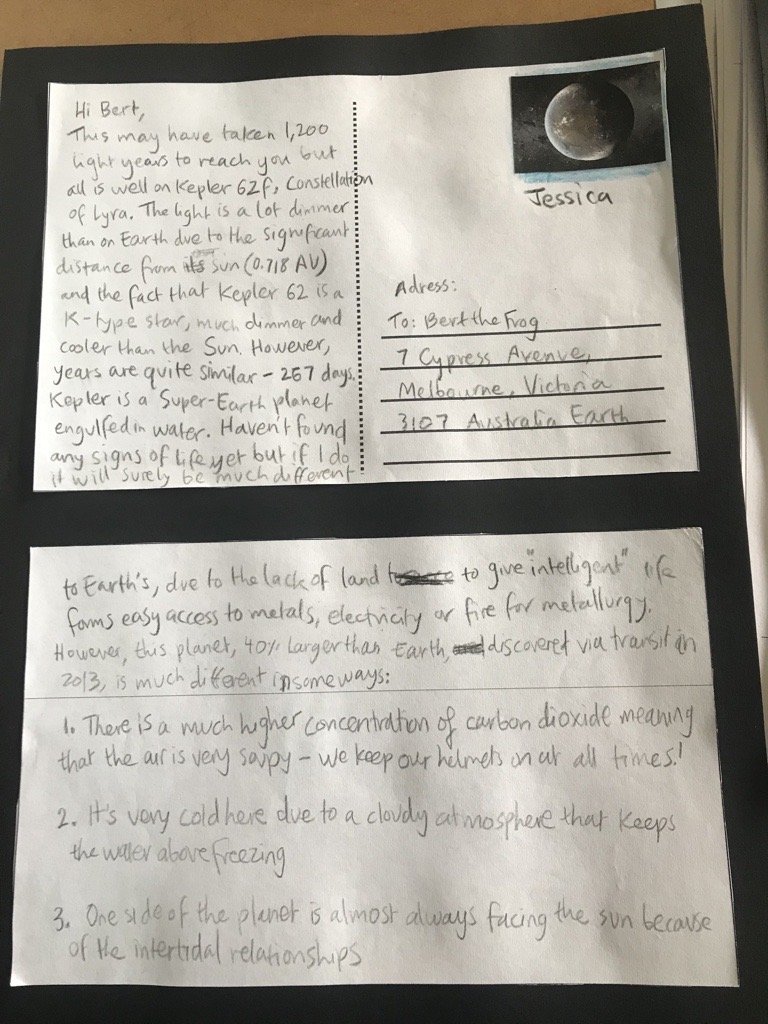 Hi Bert,
This may have taken 1,200
light years to reach you but
all is well on Kepler 62f, Constellation
of Lyra. The light is a lot dimmer
than on Earth due to the significant
distance from its sun (0.718 AU)
and the fact that Kepler 62 is a
K-type star, much dimmer and
cooler than the Sun. However,
years are quite similar - 267 days.
Kepler is a Super-Earth planet
engulfed in water. Haven't found
any signs of life yet but if I do
it will surely be much different
Jessica
Adress:
To: Bert the Frog
7 Cypress Avenue,
Melbourne, Victoria
3107 Australia Earth
to Earth's, due to the lack of land to give "intelligent" life
forms easy access to metals, electricity or fire for metallurgy.
However, this planet, 40% larger than Earth, discovered via transit in
2013, is much different in some ways:
1. There is a much higher concentration of carbon dioxide meaning
that the air is very soupy - we keep our helmets on at all times!
2. It's very cold here due to a cloudy atmosphere that keeps
the water above freezing
3. One side of the planet is almost always facing the sun because
of the intertidal relationships